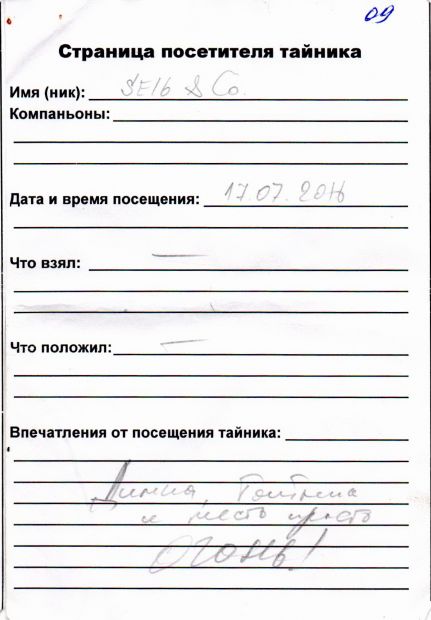 09
Страница посетителя тайника
Имя (ник): SE16 & Co.
Компаньоны:
Дата и время посещения: 17.07.2016
Что взял: —
Что положил: —
Впечатления от посещения тайника:
и место просто
ОГОНЬ!